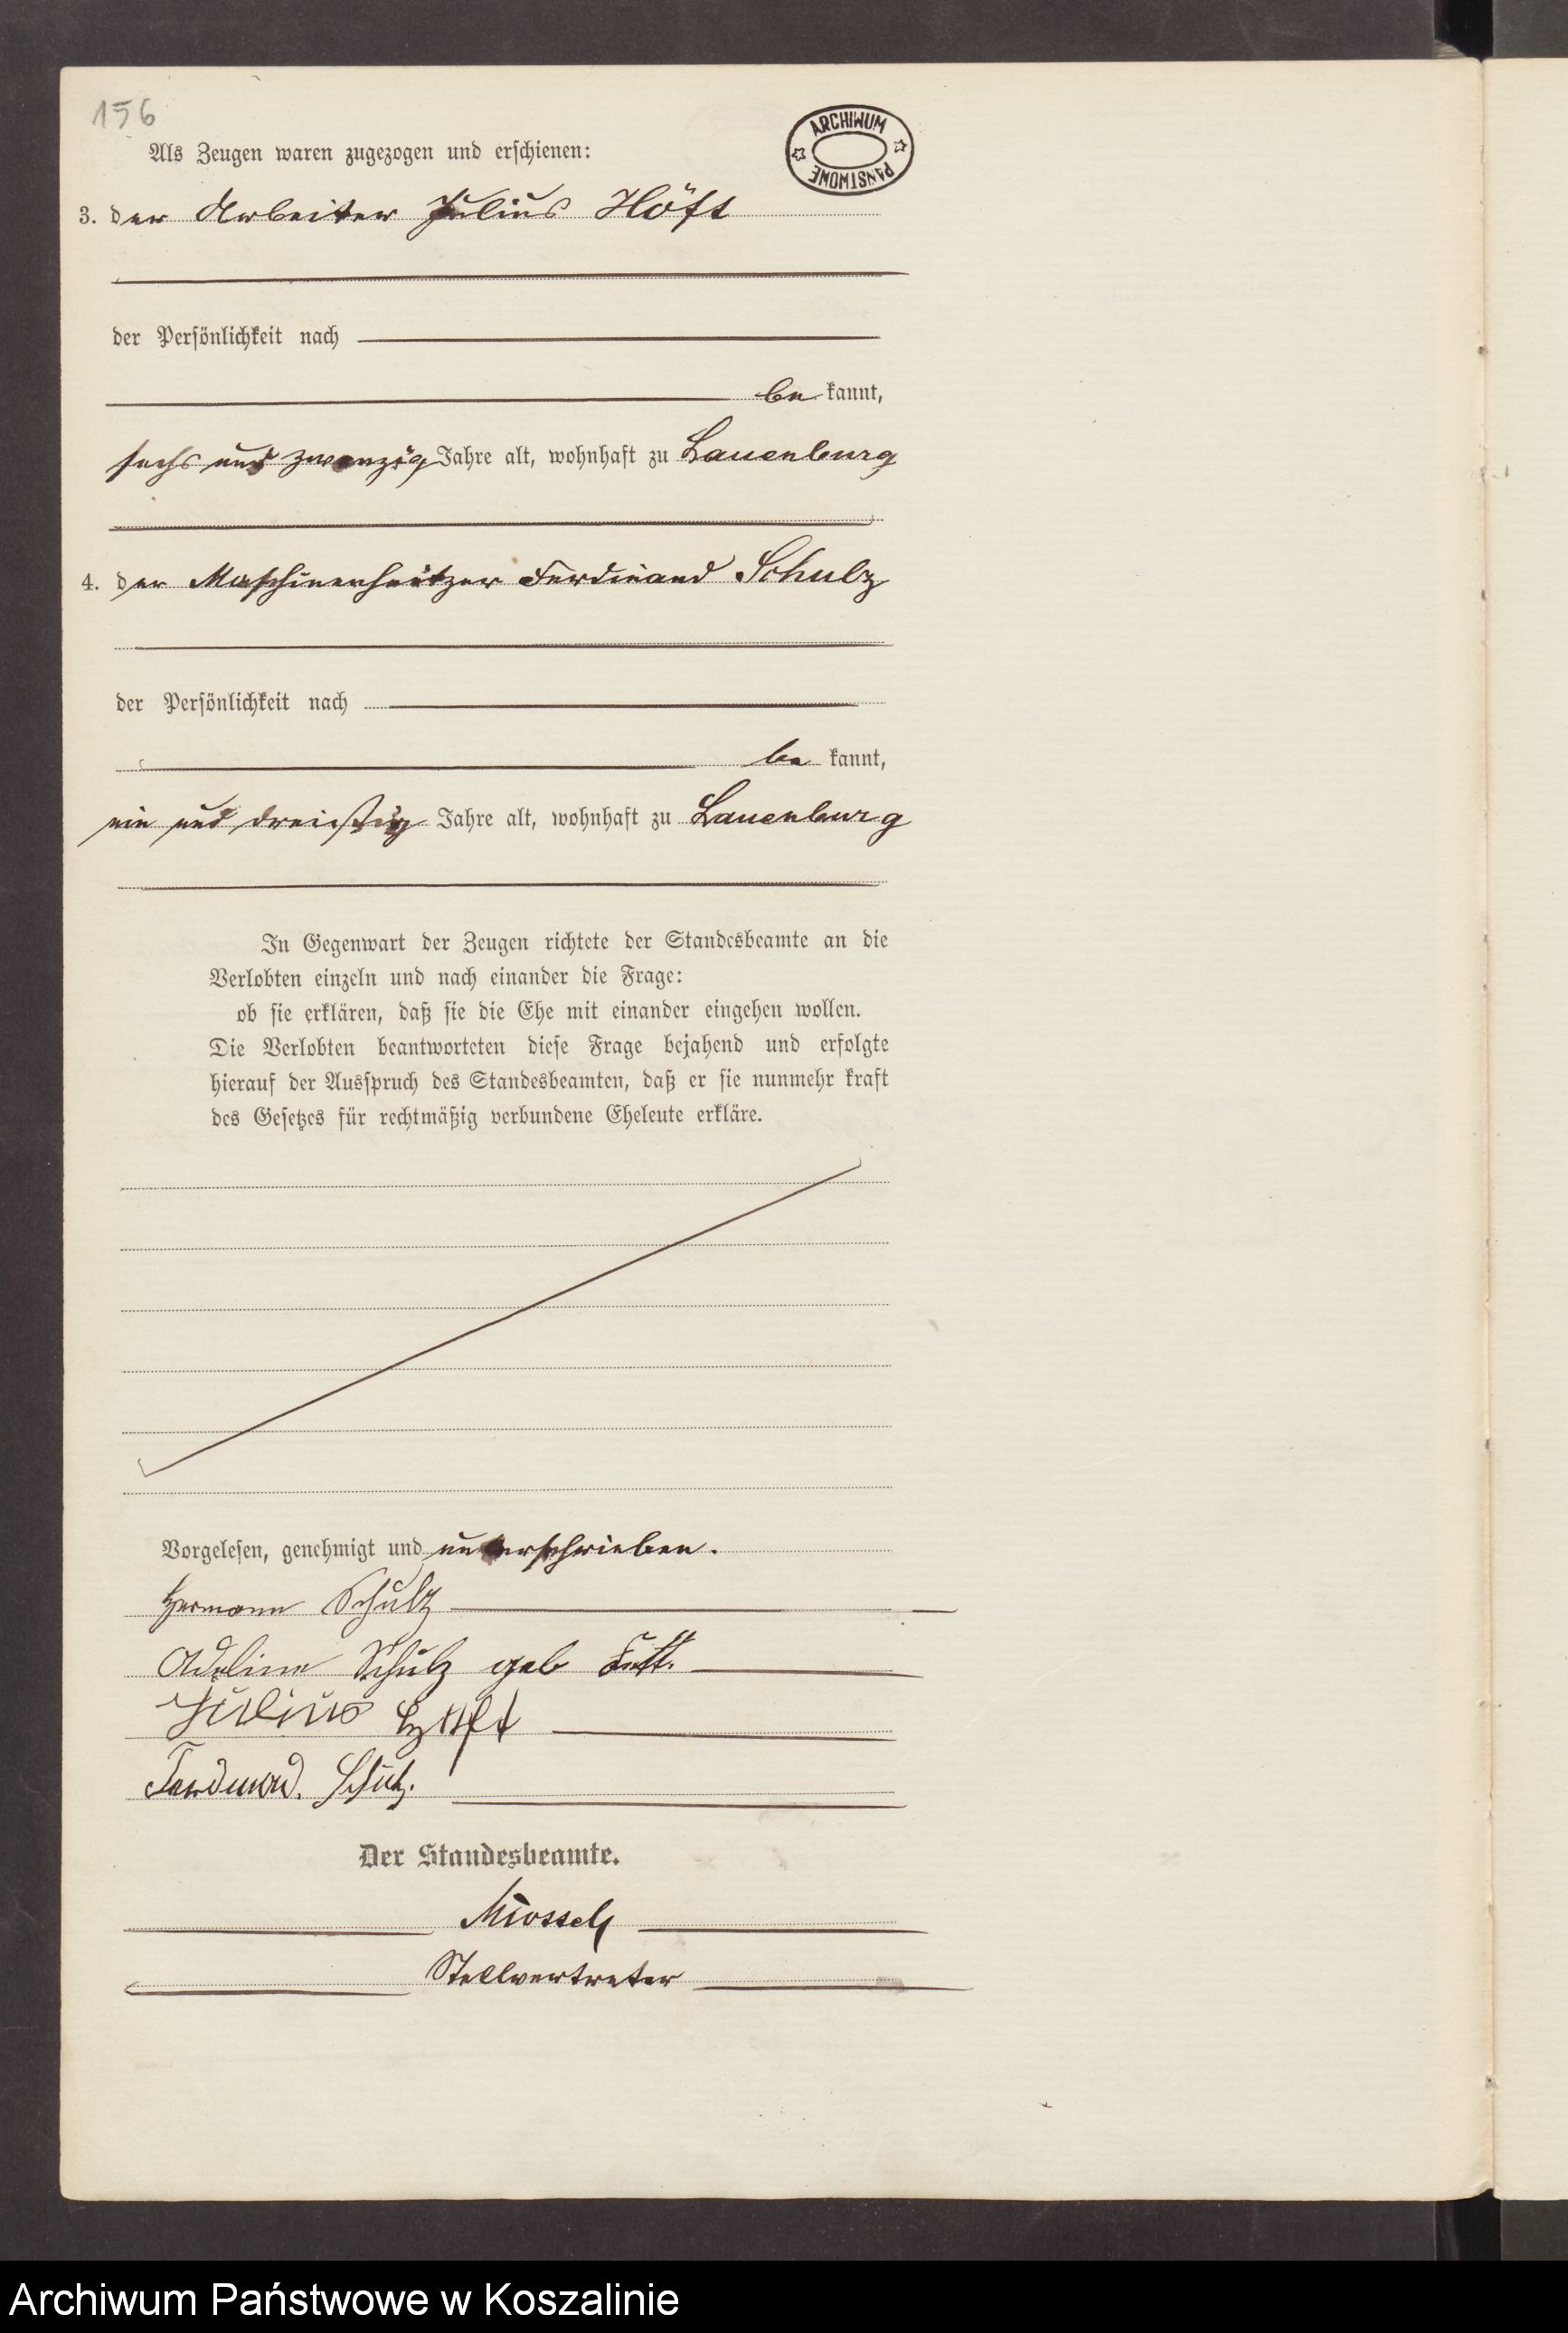 156
ARCHIWUM PAŃSTWOWE
Als Zeugen waren zugezogen und erschienen:
3. der Arbeiter Julius Höft
der Persönlichkeit nach
be kannt,
sechs und zwanzig Jahre alt, wohnhaft zu Lauenburg
4. der Maschinenheitzer Ferdinand Schulz
der Persönlichkeit nach
be kannt,
ein und dreißig Jahre alt, wohnhaft zu Lauenburg
In Gegenwart der Zeugen richtete der Standesbeamte an die
Verlobten einzeln und nach einander die Frage:
ob sie erklären, daß sie die Ehe mit einander eingehen wollen.
Die Verlobten beantworteten diese Frage bejahend und erfolgte
hierauf der Ausspruch des Standesbeamten, daß er sie nunmehr kraft
des Gesetzes für rechtmäßig verbundene Eheleute erkläre.
Vorgelesen, genehmigt und unterschrieben.
Hermann Schulz
Adeline Schulz geb
Julius Höft
Ferdinand. Schulz.
Der Standesbeamte.
Stellvertreter
Archiwum Państwowe w Koszalinie